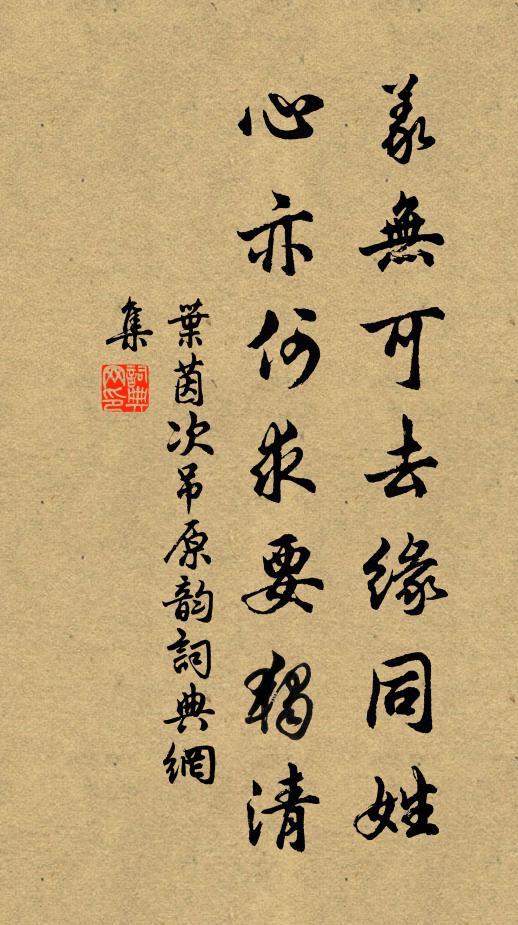 義無可去緣同姓
心亦何求要獨清
葉茵次吊原韵詞典網
集
詞典網印